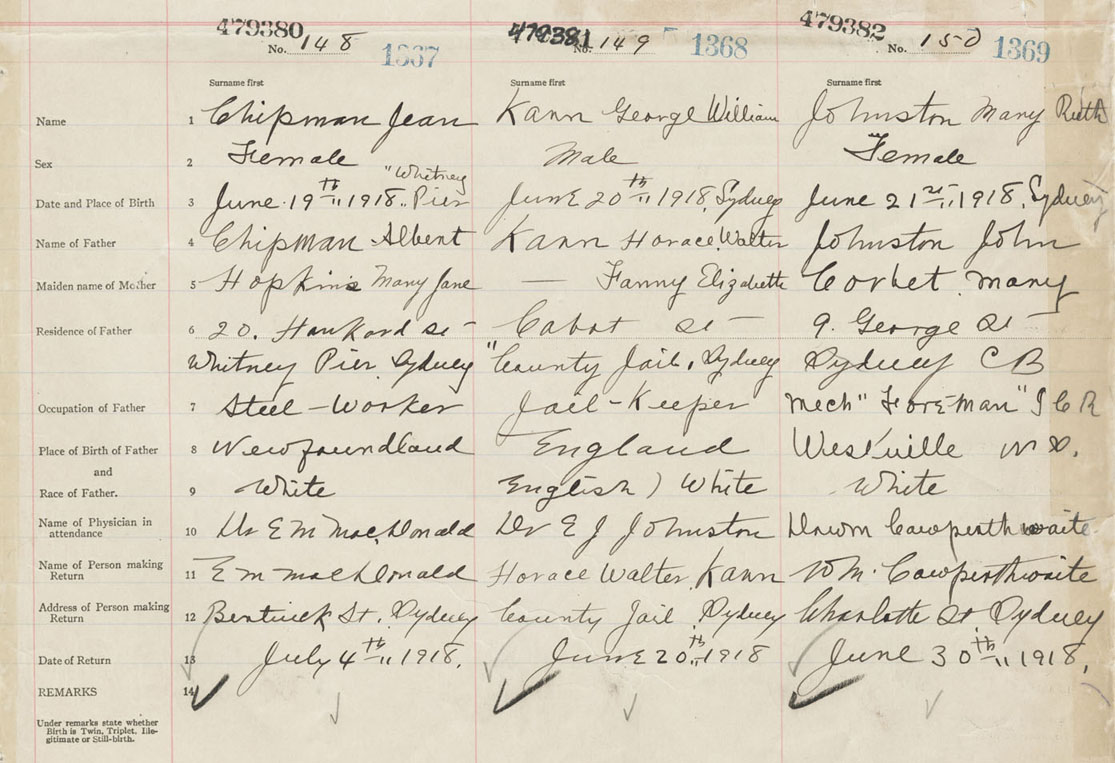 479380 479381 479382
No. 148 1367 No. 149 1368 No. 150 1369
Surname first Surname first Surname first
Name 1 Chipman Jean Kann George William Johnston Mary Ruth
Sex 2 Female Male Female
"Whitney
Date and Place of Birth 3 June 19th 1918. Pier June 20th 1918, Sydney June 21st 1918, Sydney
Name of Father 4 Chipman Albert Kann Horace Walter Johnston John
Maiden name of Mother 5 Hopkins Mary Jane — Fanny Elizabeth Corbet Mary
Residence of Father 6 20. Hankard St Cabot St 9. George St
Whitney Pier, Sydney "County Jail, Sydney Sydney C B
Occupation of Father 7 Steel-Worker Jail-Keeper Mech "Foreman"
Place of Birth of Father 8 Newfoundland England Westville N S.
and
Race of Father. 9 White English) White White
Name of Physician in 10 Dr E M MacDonald Dr E J Johnston Cowperthwaite
attendance
Name of Person making 11 E M MacDonald Horace Walter Kann Wm. Cowperthwaite
Return
Address of Person making 12 Bentinck St. Sydney County Jail, Sydney Charlotte St. Sydney
Return
Date of Return 13 July 4th 1918. June 20th 1918 June 30th 1918.
REMARKS 14
Under remarks state whether
Birth is Twin, Triplet, Ille-
gitimate or Still-birth.